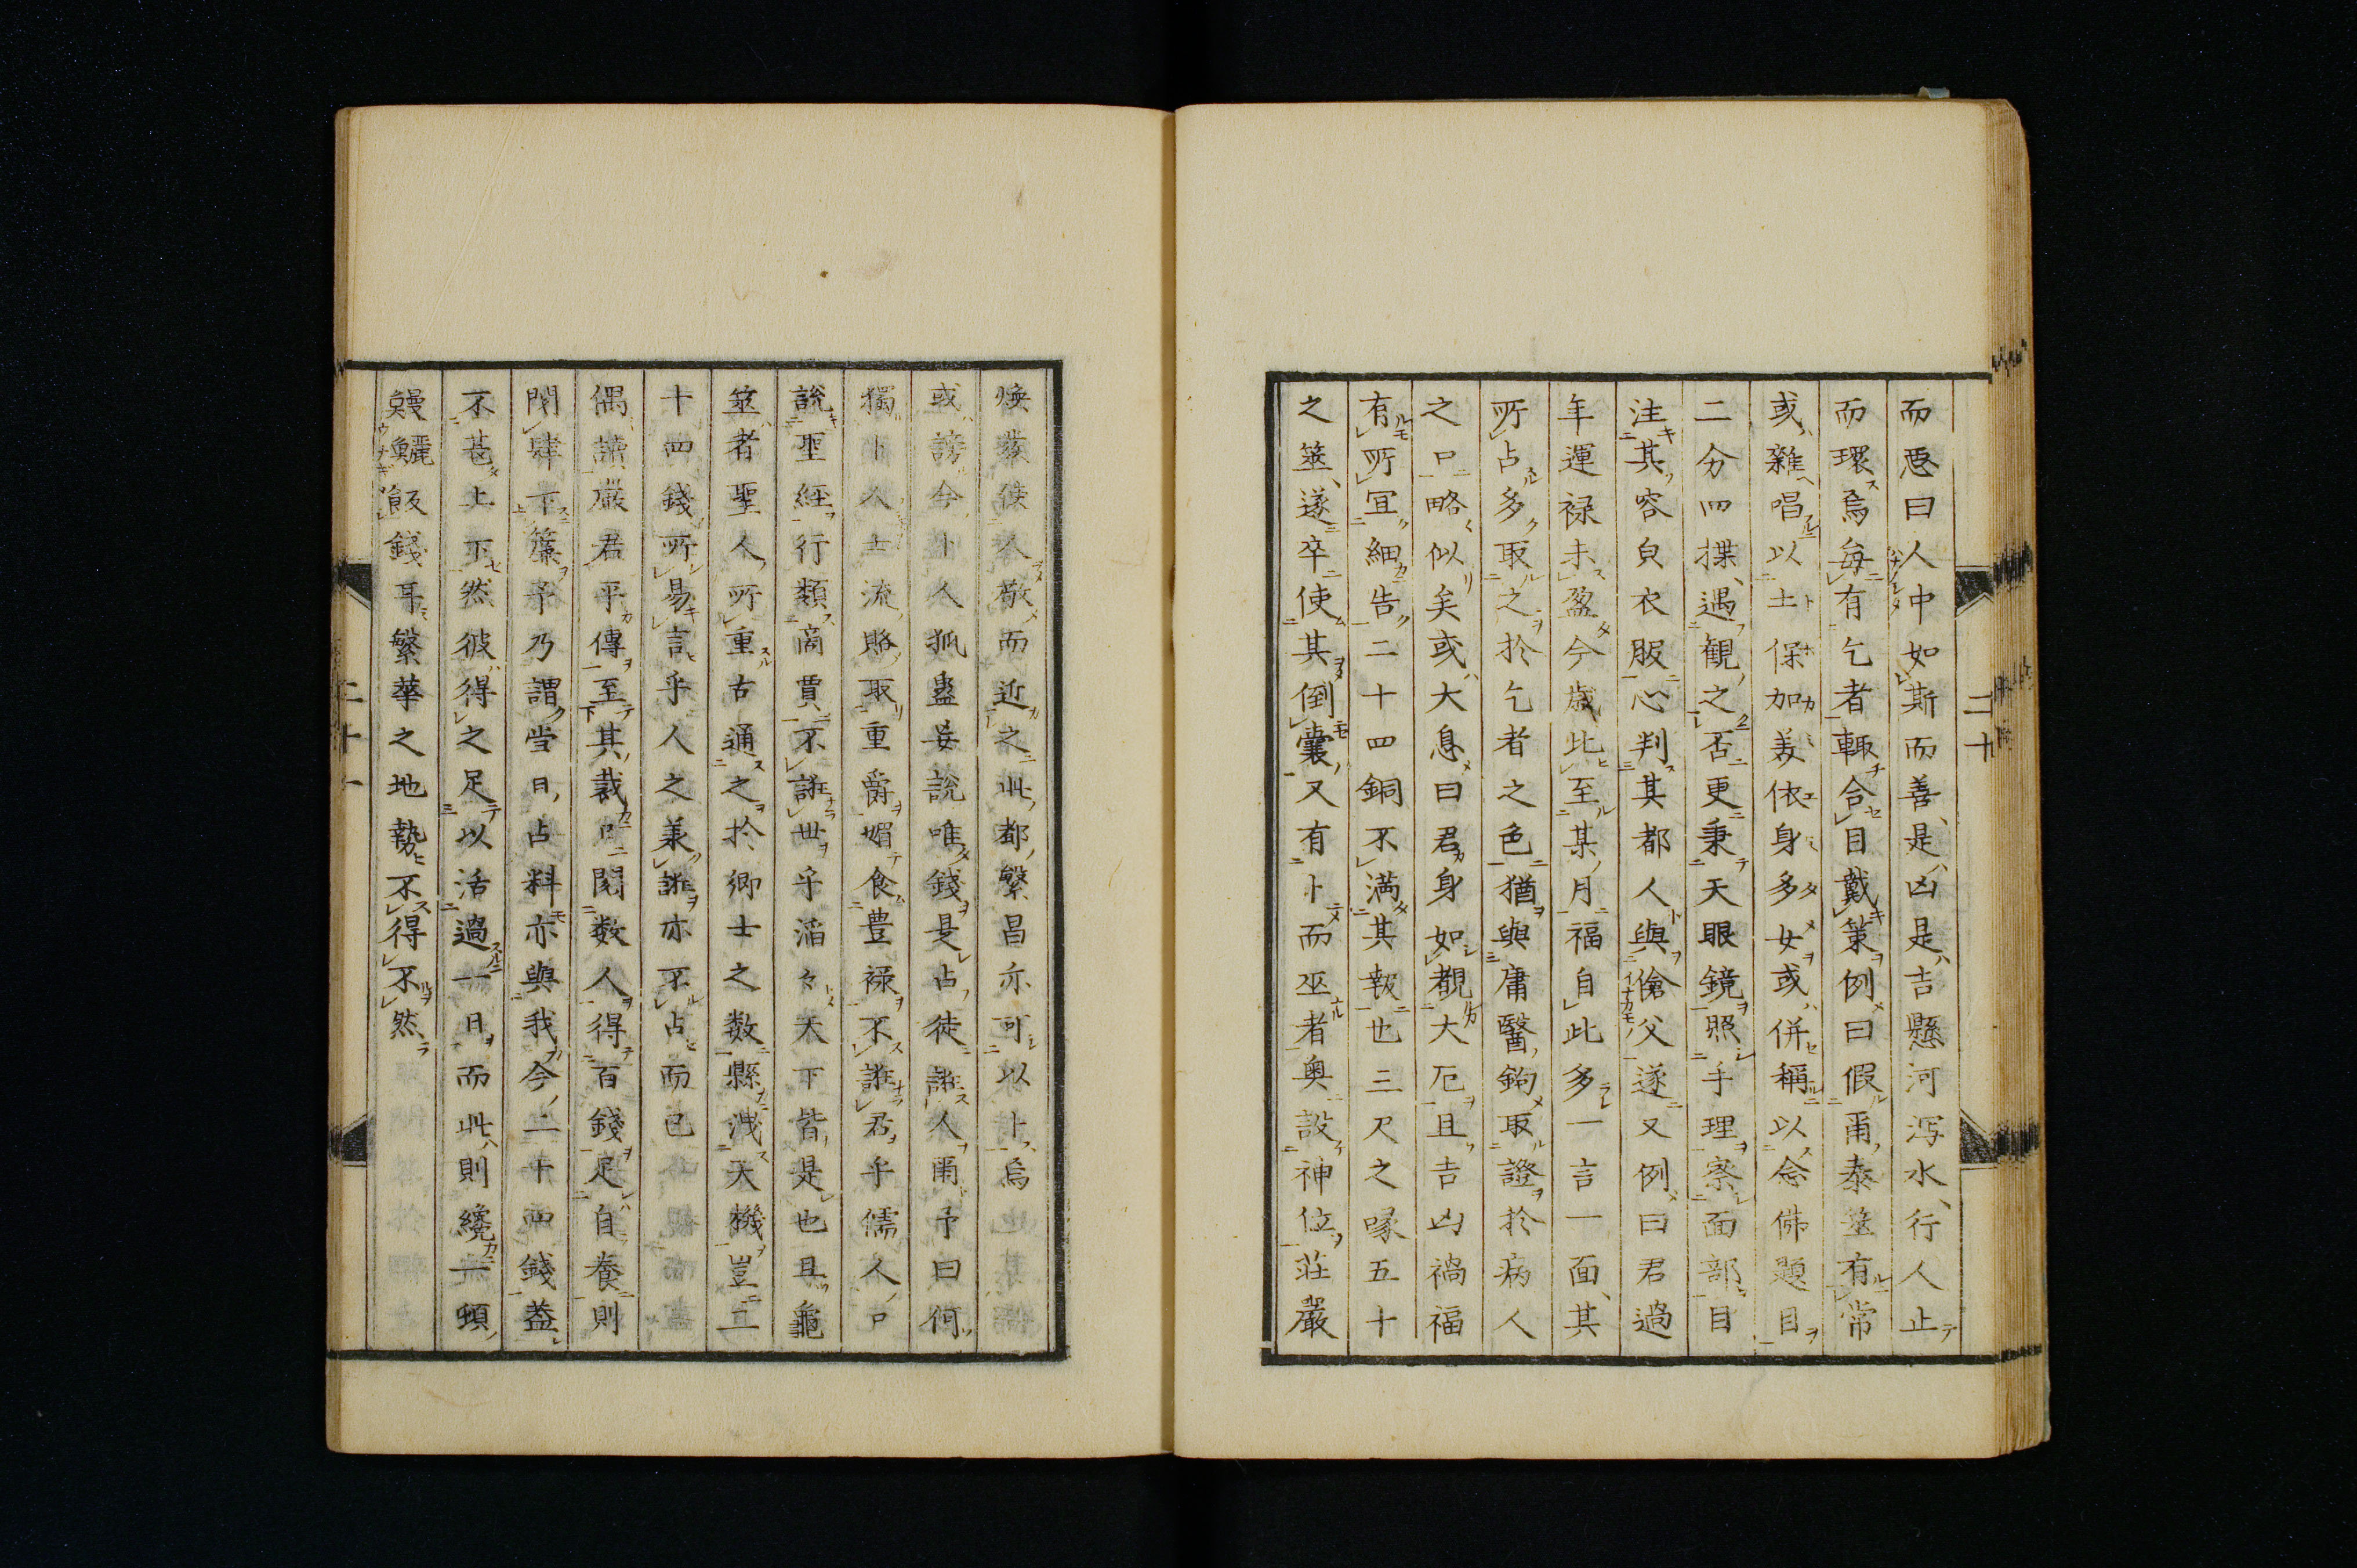 而悪曰人中如斯而善是凶是吉懸河瀉水行人止
而環焉毎有乞者輙合目戴筴例曰假甭泰筮有常
或雜唱以土保加美依身多女或併稱以念佛題目
二分四揲遇觀之否更秉天眼鏡照手理察面部目
注其容皃衣服心判其都人與傖父遂又例曰君過
年運禄未盈今歳比至某月福自此多一言一面其
所占多取之於乞者之色猶與庸醫鉤取證於病人
之口略似矣或大息曰君身如觀大厄且吉凶禍福
有所宜細告二十四銅不満其報也三尺之喙五十
之筮遂卒使其倒囊又有卜而巫者奥設神位荘嚴
二十
煥發使人敬而近之此都繁昌亦可以卜焉
或謗今卜人狐蠱妄說唯錢是占徒誑人甭予曰何
獨卜人士流賂取重爵媚食豊禄不誑君乎儒人口
說聖経行類商賈不誑世乎滔々天下皆是也且龜
筮者聖人所重古通之於卿士之数縣洩天機豈二
十四錢所易言乎人之兼誑亦不占而已
偶讀嚴君平傳至其裁曰閲数人得百錢足自養則
閉肆下簾予乃謂当日占料亦與我今二十四錢蓋
不甚上下然彼得之足以活過一日而此則纔一頓
鰻鱺飯錢耳繁華之地勢不得不然
二十一